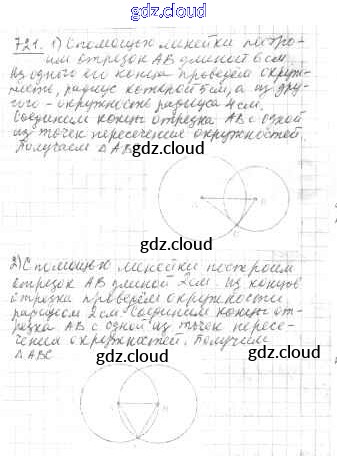 gdz.cloud
721. 1) С помощью линейки постро-
им отрезок AB длиной 6 см.
Из одного его конца проведём окруж-
ность, радиус которой 5 см, а из дру-
gdz.cloud
гого - окружность радиуса 4 см.
Соединим концы отрезка AB с одной
из точек пересечения окружностей.
Получаем △ ABC
gdz.cloud
gdz.cloud
2) С помощью линейки построим
отрезок AB длиной 2 см. Из концов
отрезка проведём окружности
gdz.cloud
радиусом 2 см. Соединим концы от-
резка AB с одной из точек пересе-
чения окружностей. Получим
△ ABC
gdz.cloud
gdz.cloud